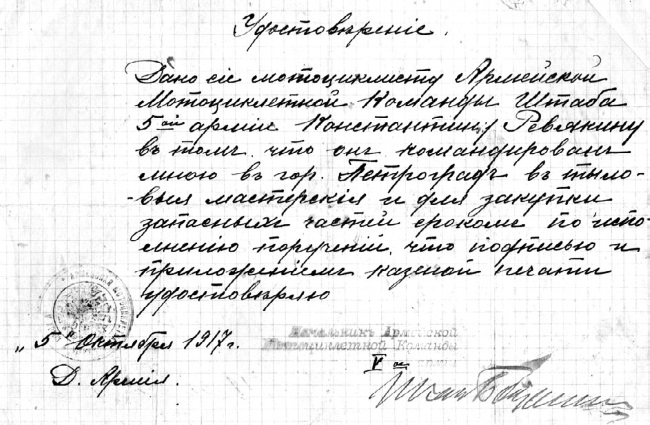 Удостовѣреніе.
Дано сіе мотоциклисту Армейской
Мотоциклетной Команды Штаба
5ой арміи Константину Ревякину
въ томъ, что онъ командированъ
мною въ гор. Петроградъ въ тыло-
-выя мастерскія и для закупки
запасныхъ частей срокомъ по испол-
нению порученій, что подписью и
приложеніемъ казеной печати
удостовѣряю
"5" Октября 1917 г.
Д. Армія.
Начальникъ Армейской
Мотоциклетной Команды
V ой арміи